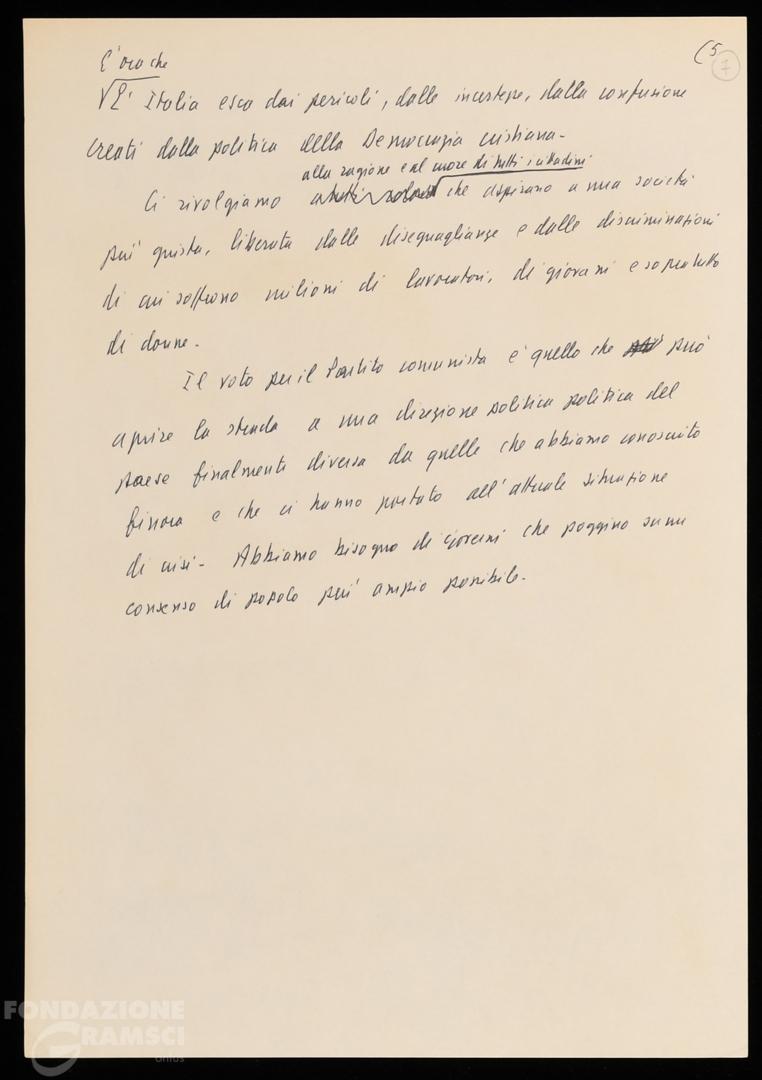 (5
7
E' ora che
L'Italia esca dai pericoli, dalle incertezze, dalla confusione
creati dalla politica della Democrazia cristiana -
alla ragione e al cuore di tutti i cittadini
Ci rivolgiamo a tutti coloro che aspirano a una società
più giusta, liberata dalle diseguaglianze e dalle discriminazioni
di cui soffrono milioni di lavoratori, di giovani e sopratutto
di donne -
Il voto per il Partito comunista è quello che può
aprire la strada a una direzione politica politica del
paese finalmente diversa da quelle che abbiamo conosciuto
finora e che ci hanno portato all'attuale situazione
di crisi - Abbiamo bisogno di governi che poggino su un
consenso di popolo più ampio possibile -
FONDAZIONE
GRAMSCI
onlus